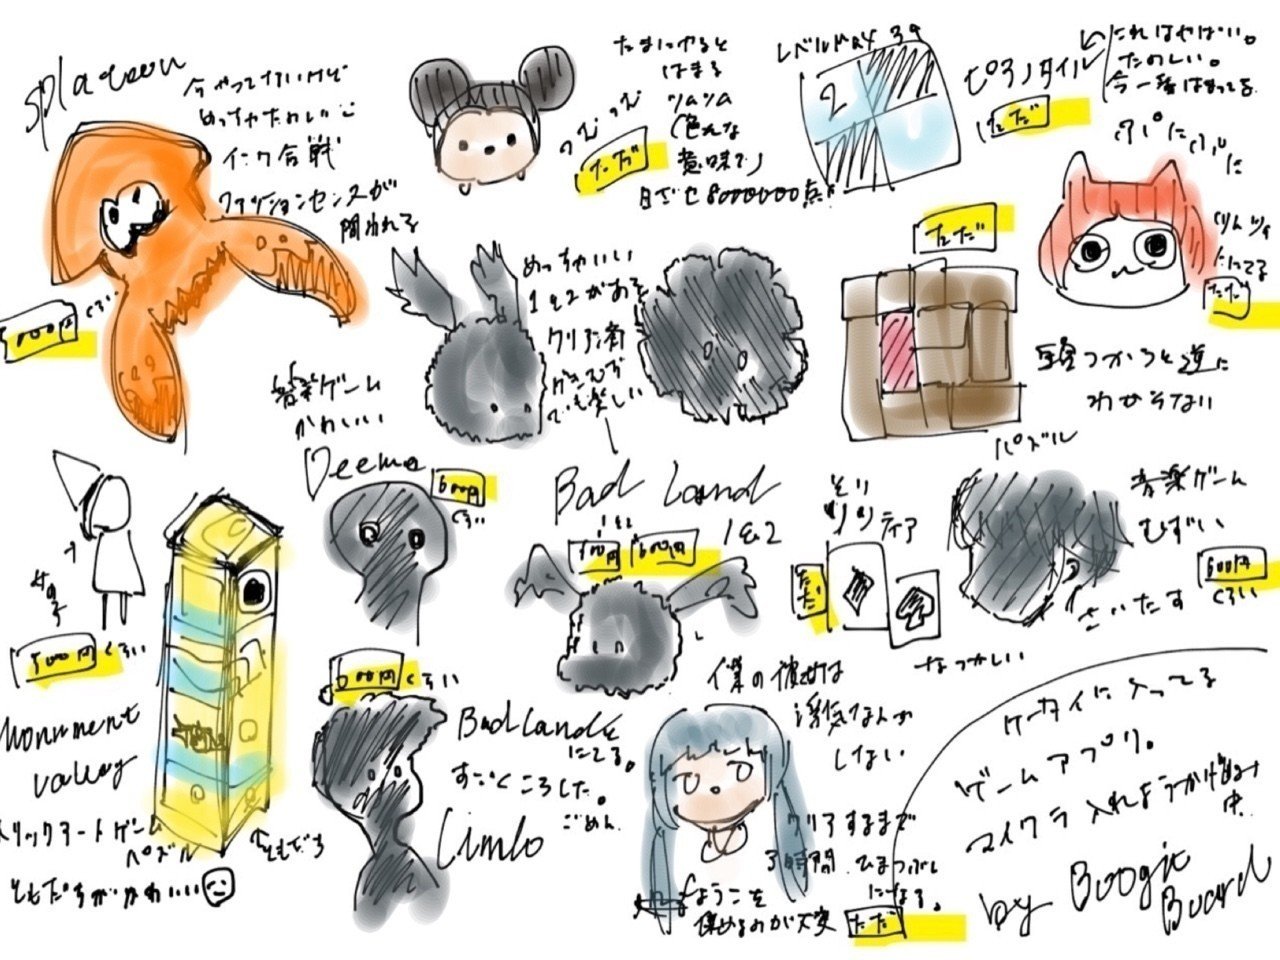 splatoon
今やってないけど
めっちゃたのしい
インク合戦
ファッションセンスが
問われる
くらい
つむつむ
ただ
たまにやると
はまる
ツムツム
(色んな
意味で)
目ざせ8000000点
レベルMAX 39
2
ピアノタイル
ただ
これはやばい。
たのしい。
今一番はまってる
パパにパパに
ツムツム
ににてる
ただ
めっちゃいい
1と2がある
クリア済
でも楽しい
Bad Land
1&2
600円
ただ
頭つかうと逆に
わからない
パズル
音楽ゲーム
かわいい
Deemo
600円
くらい
女の子
500円くらい
Monument
valley
トリックアートゲーム
パズル
ともだちがかわいい
ともだち
くらい
BadLandと
にてる。
すごくころした。
ごめん
Limbo
そり
ソリティア
ただ
なつかしい
音楽ゲーム
むずい
600円
くらい
さいたす
僕の彼女は
浮気なんか
しない
クリアするまで
3時間 ひまつぶし
になる。
集めるのが大変
ただ
ケータイに入ってる
ゲームアプリ。
マイクラ入れようか検討
中
by Boogie
Board